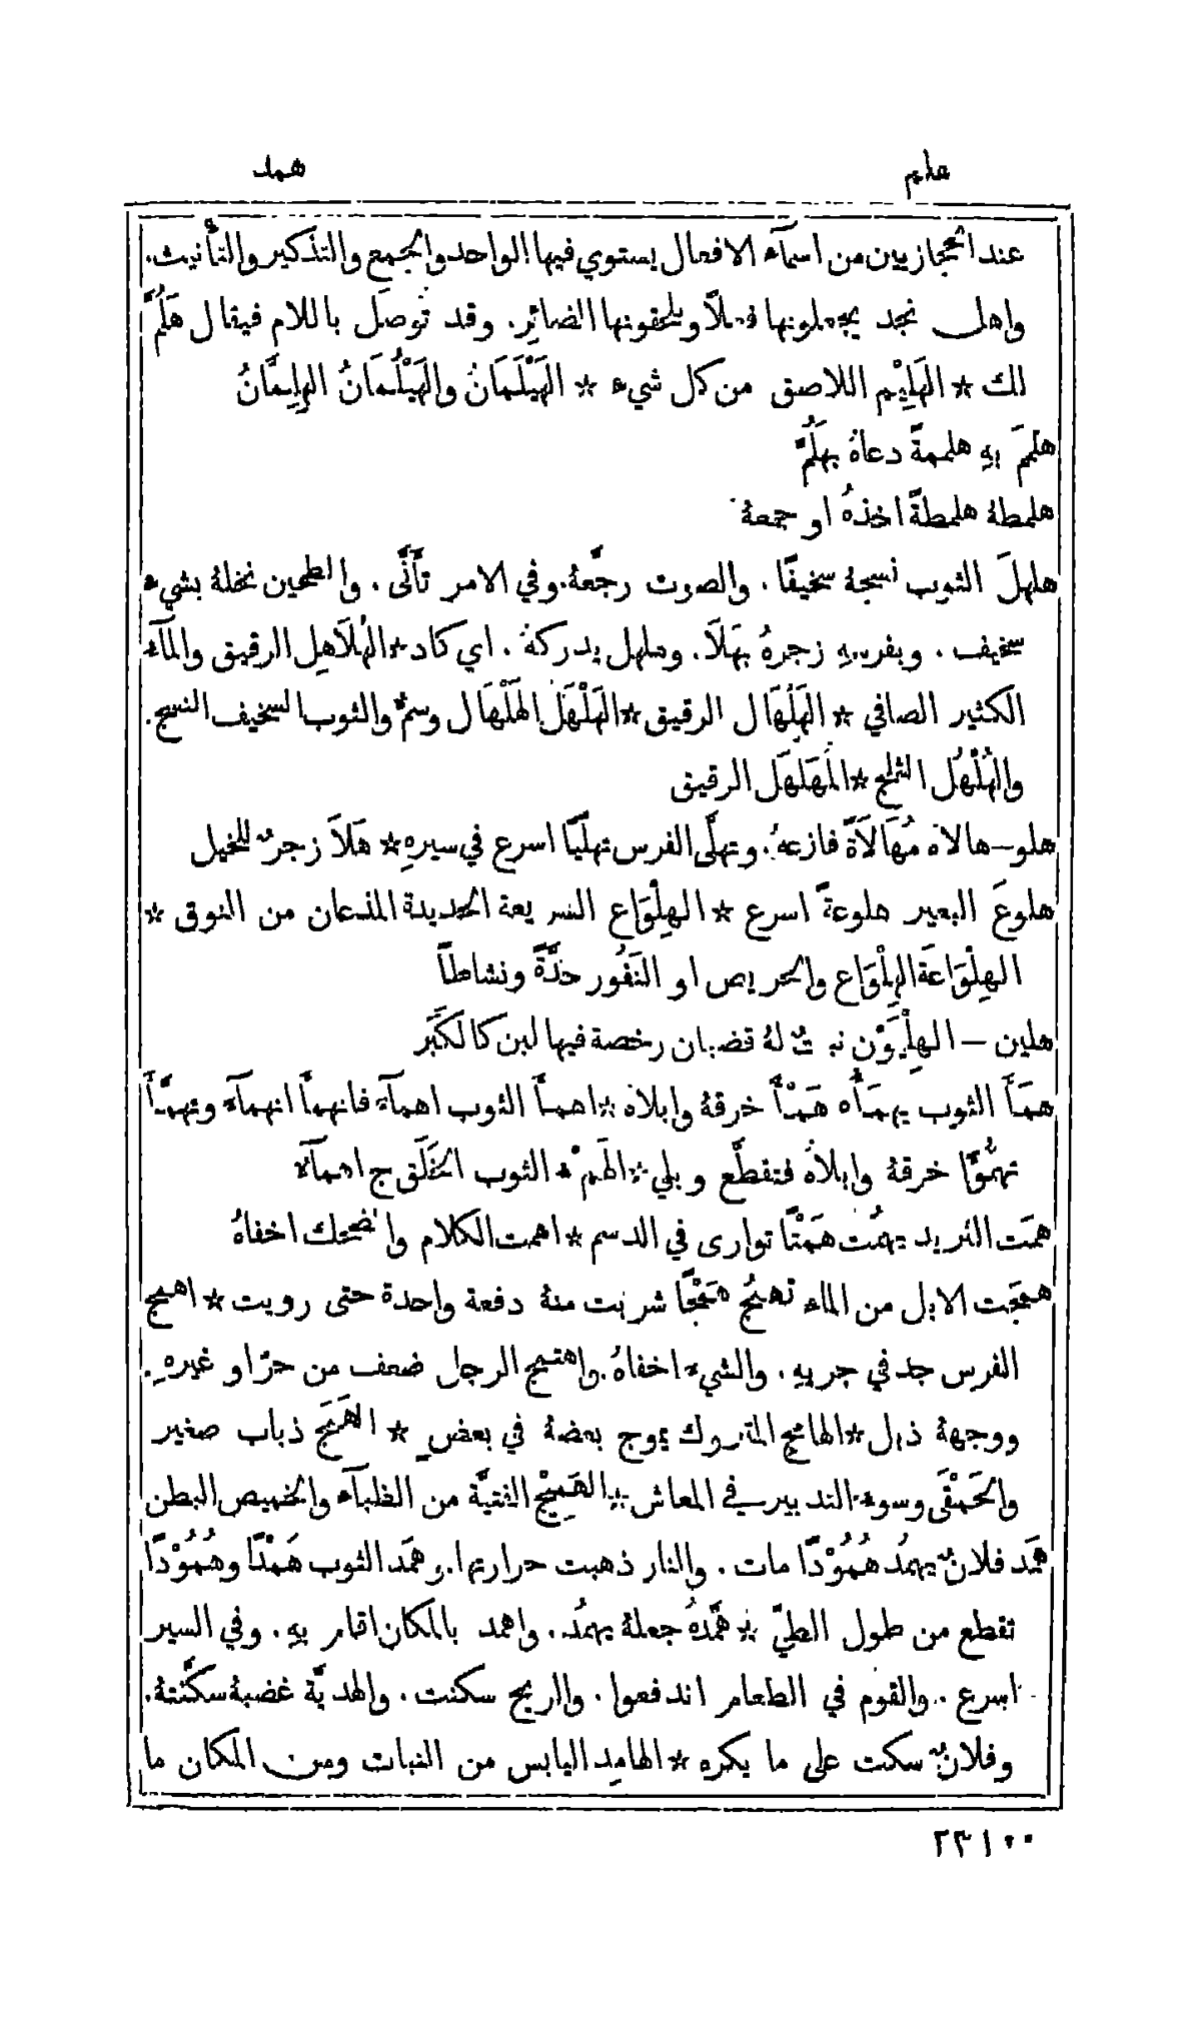 هلم
همد
عند الحجازيين من اسمآء الافعال يستوي فيها الواحد والجمع والتذكير والتأنيث.
واهل نجد يجعلونها فعلاً ويلحقونها الضائر. وقد توصَل باللام فيقال هَلُمَّ
لك * الهَلِيْم اللاصق من كل شيء * الهَيْلَمَانُ والهَيْلُمَانُ الهِلِمَّانُ
هلمَ بهِ هلممةً دعاهُ بهَلُمَّ
هلمطهُ هلمطةً اخذهُ او جمعهُ
هلهلَ الثوب نسجهُ سخيفًا. والصوت رجَّعهُ. وفي الامر تأَنَّى. والطحين نخلهُ بشيء
سخيف. وبفرسهِ زجرهُ بهَلاَ. وهلهل يدركهُ. اي كاد * الهُلاَهِل الرقيق والمآء
الكثير الصافي * الهَلْهَال الرقيق * الهَلْهَل الهَلْهَال وسمٌّ والثوب السخيف النسج.
والهُلْهُل الثلج * المُهَلهَل الرقيق
هلو – هالاهُ مُهَالاَةً فازعهُ. وتهلَّى الفرس تهلّيًا اسرع في سيرهِ * هَلاَ زجرٌ للخيل
هلوعَ البعير هلوعةً اسرع * الهِلْوَاع السريعة الحديدة المذعان من النوق *
الهِلْوَاعَة الهِلْوَاع والحريص او النَفُور حدَّةً ونشاطًا
هلين – الهِلْيَوْن نبتٌ لهُ قضبان رخصة فيها لبن كالكَبَر
همَأَ الثوب يهمَأُهُ هَمْأً خرقهُ وابلاهُ * اهمأ الثوب اهمآءً فانهمأ انهمآءً وتهمَّأَ
تهمُّوًا خرقهُ وابلاهُ فتقطَّع وبلي * الهِمْء الثوب الخَلَق ج اهمآء
همَت الثريد يهمُت هَمْتًا توارى في الدسم * اهمت الكلام والضحك اخفاهُ
همجَت الابل من الماء تهمُج هَمْجًا شربت منهُ دفعة واحدة حتى رويت * اهمج
الفرس جد في جريهِ. والشيء اخفاهُ. واهتمج الرجل ضعف من حرّ او غيرهِ.
ووجههُ ذبل * الهامج المتروك يموج بعضهُ في بعضٍ * الهَمَج ذباب صغير
والحَمْقَى وسوء التدبير في المعاش * الهَمِيْج الفتيَّة من الظبآء والخميص البطن
همَد فلانٌ يهمُد هُمُوْدًا مات. والنار ذهبت حرارتها. وهمَد الثوب هَمْدًا وهُمُوْدًا
تقطع من طول الطيّ * همَّدهُ جعلهُ يهمُد. واهمد بالمكان اقام بهِ. وفي السير
اسرع. والقوم في الطعام اندفعوا. والريح سكنت. والهديَّة غضبهُ سكَّنتهُ.
وفلانٌ سكت على ما يكره * الهامِد اليابس من النبات ومن المكان ما
٢٣١٠٠